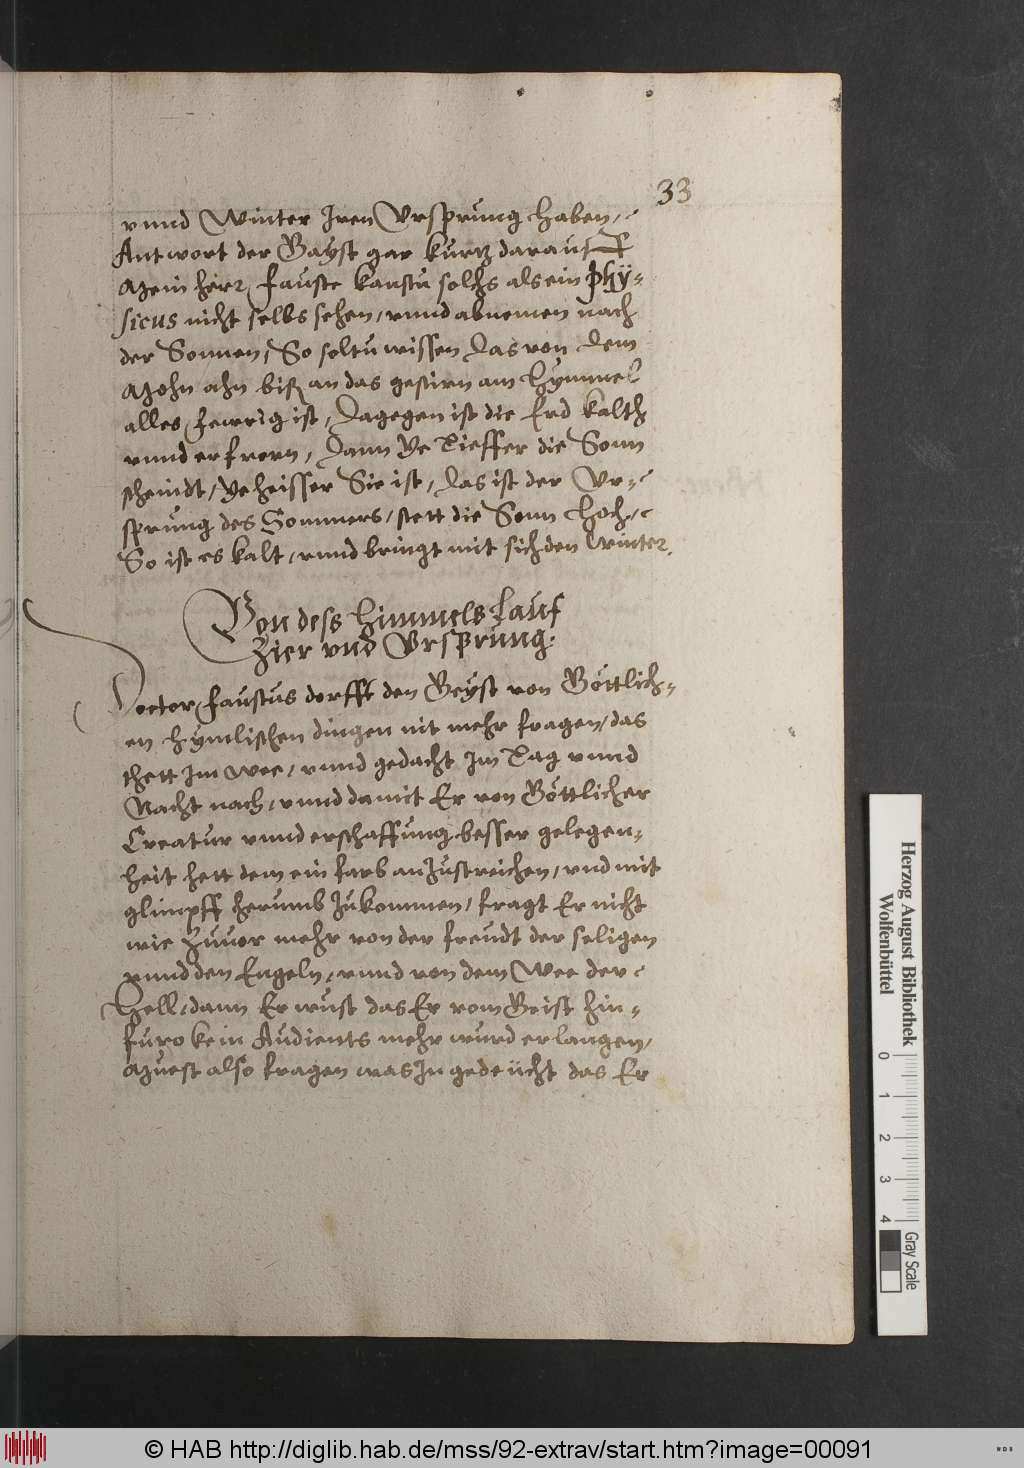 33
vnnd Winter Iren Vrsprung haben,
Antwort der Gayst gar kurtz darauff
Mein herr Fauste kanstu solchs als ein phÿ-
sicus nicht selbs sehen, vnnd abnemen nach
der Sonnen, So soltu wissen das von dem
Mohn ahn biß an das gestirn am Hymmel
alles fewrig ist, dagegen ist die Erd kalth
vnnd erfrorn, dann Ye Tieffer die Sonn
scheindt, Ye heisser Sie ist, das ist der Vr-
sprung des Sommers, stett die Sonn hoch,
So ist es kalt, vnnd bringt mit sich den Winter.
Von dess Himmels Lauf
Zier vnd Vrsprung.
Doctor Faustus dorfft den Geyst von Göttlich-
en hymlischen dingen nit mehr fragen, das
thett Im wee, vnnd gedacht Im Tag vnnd
Nacht nach, vnnd damit Er von Göttlicher
Creatur vnnd erschaffung besser gelegen-
heit hett dem ein farb an Zustreichen, vnd mit
glimpff herumb Zukommen, fragt Er nicht
wie Zuuor mehr von der freudt der seligen
vnnd den Engeln, vnnd von dem Wee der
Hell, dann Er wust das Er vom Geist hin-
furo kein Audients mehr wurd erlangen,
Muest also fragen was In gedeücht das Er
Herzog August Bibliothek
Wolfenbüttel
0 1 2 3 4
Gray Scale
© HAB http://diglib.hab.de/mss/92-extrav/start.htm?image=00091
WDB